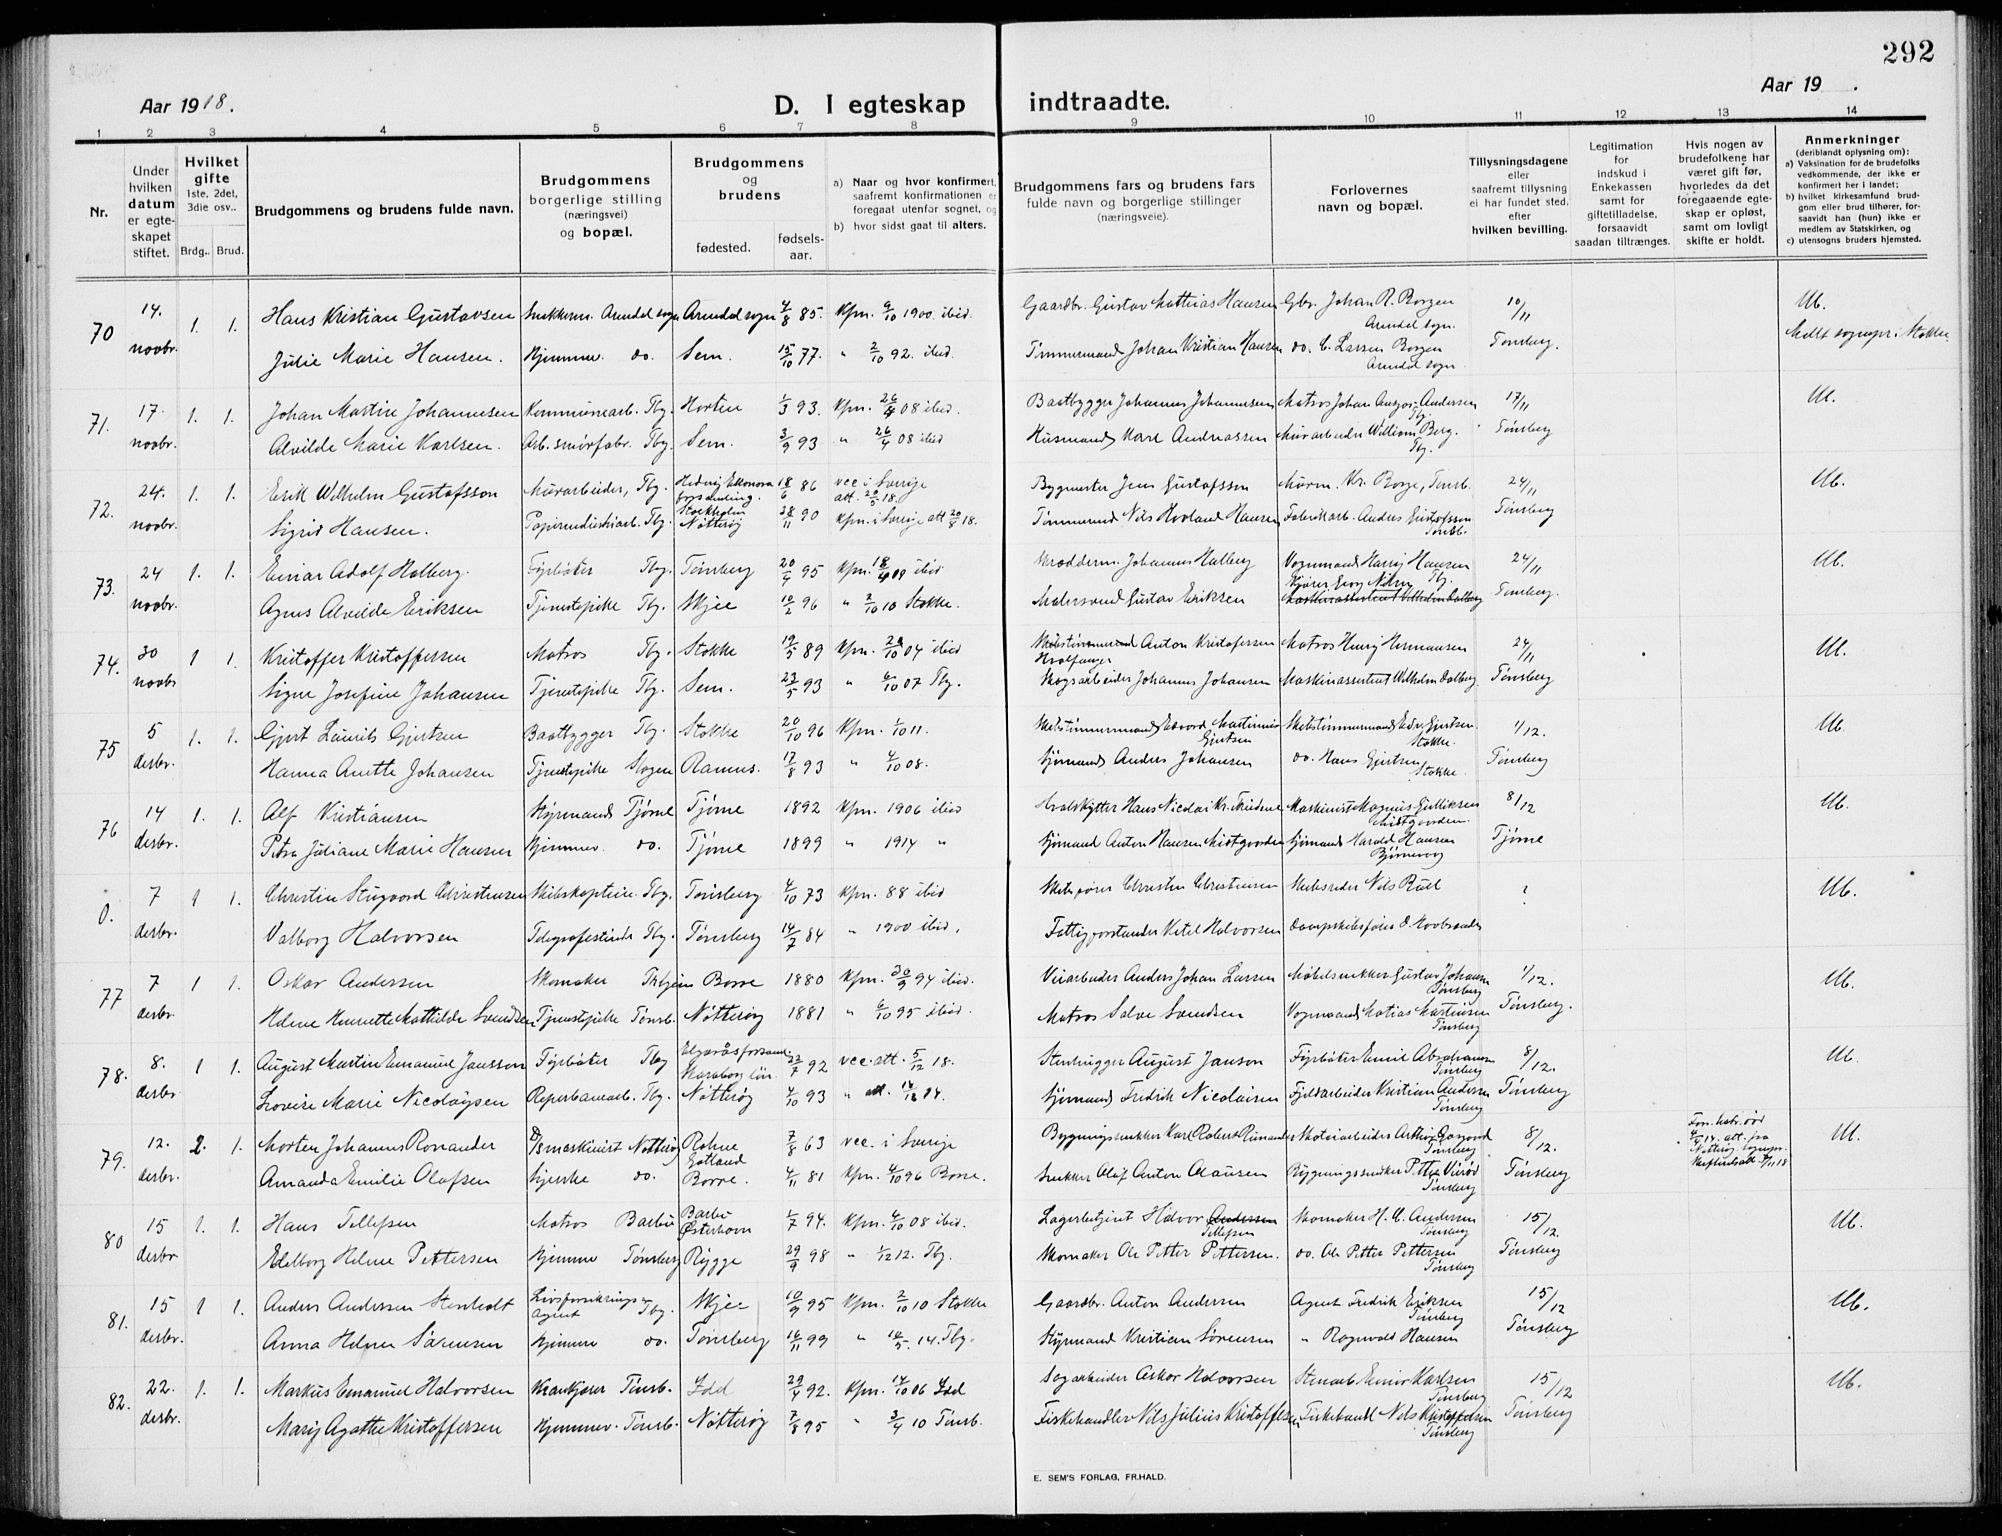 292
Aar 1918.
D. I egteskap indtraadte.
Aar 19 .
1 2 3 4 5 6 7 8 9 10 11 12 13 14
Nr.
Under hvilken datum er egteskapet stiftet.
Hvilket gifte 1ste, 2det, 3die osv..
Brdg.. Brud.
Brudgommens og brudens fulde navn.
Brudgommens borgerlige stilling (næringsvei) og bopæl.
Brudgommens og brudens
fødested.
fødsels-aar.
a) Naar og hvor konfirmert, saafremt konfirmationen er foregaat utenfor sognet, og
b) hvor sidst gaat til alters.
Brudgommens fars og brudens fars fulde navn og borgerlige stillinger (næringsveie).
Forlovernes navn og bopæl.
Tillysningsdagene eller saafremt tillysning ei har fundet sted. efter hvilken bevilling.
Legitimation for indskud i Enkekassen samt for giftetilladelse, forsaavidt saadan tiltrænges.
Hvis nogen av brudefolkene har været gift før, hvorledes da det foregaaende egteskap er opløst, samt om lovligt skifte er holdt.
Anmerkninger (deriblandt oplysning om):
a) Vaksination for de brudefolks vedkommende, der ikke er konfirmert her i landet;
b) hvilket kirkesamfund brudgom eller brud tilhører, forsaavidt han (hun) ikke er medlem av Statskirken, og
c) utensogns bruders hjemsted.
70 14. novbr. 1. 1. Hans Kristian Gustavsen Snekkerm. Arendal sogn Arendal sogn 4/8 85. kfm. 9/10 1900. ibid. Gaardbr. Gustav Mathias Hansen Gbr. Johan R. Borgen Arendal sogn. 10/11 Ub.
Julie Marie Hansen. Hjemmev. do. Sem. 15/10 77. " 2/10 92. ibid. Tømmermand Johan Kristian Hansen do. C. Larsen Borgen Arendal sogn. Tønsberg. Meldt sognepr. i Stokke
71. 17 novbr. 1. 1. Johan Martin Johannesen Kommunearb. Tbg. Horten 1/3 93. kfm. 26/4 08 ibid. Baatbygger Johannes Johannesen Matros Johan Andersen Tbg. 17/11 Ub.
Alvilde Marie Karlsen. Arb. smørfabr. Tbg. Sem. 3/9 93 " 26/4 08 ibid Husmand Karl Andreassen Murarbeider William Berg. Tbg. Tønsberg
72. 24. novbr. 1. 1. Erik Wilhelm Gustafsson Murarbeider, Tbg. Hedvig Eleonora forsamling. Stockholm 18/6 86 vcc i Sverige att. 20/5 18. Bygmester Jens Gustafsson Murm. Kr. Borge, Tønsb. 24/11 Ub.
Sigrid Hansen. Papirindustriarb. Tbg. Nøtterøy 28/11 90 kfm. i Sverige att 20/8 18. Tømmermd Nils Hovland Hansen Fabrikarb. Anders Gustafsson Tønsb. Tønsberg
73. 24 novbr. 1. 1. Einar Adolf Halberg. Fyrbøter Tbg. Tønsberg 20/4 95 kfm. 18/4 09 ibid Skrædderm. Johannes Halberg Vognmand Harry Hansen Tbg. 24/11 Ub.
Agnes Alvilde Eriksen Tjenestepike Tbg. Skjee 10/2 96 " 2/10 10 Stokke. Malersvend Gustav Eriksen Maskinassistent Wilhelm Dalberg Tønsberg.
74. 30 novbr 1 1. Kristoffer Kristoffersen Matros Tbg. Stokke 19/5 89 kfm. 29/10 04 ibid Skibstømmermand Anton Kristofersen Hvalfanger Matros Henry Hermansen 24/11 Ub.
Signe Josefine Johansen Tjenestepike Tbg. Sem. 23/5 93 " 6/10 07 Tbg. Skogsarbeider Johannes Johansen Maskinassistent Wilhelm Dalberg Tønsberg
75 5 desbr. 1. 1. Gjert Laurits Gjertsen Baatbygger Tbg. Stokke 20/10 96 kfm. 1/10 11. Skibstømmermand Edvard Martinius Gjertsen Skibstømmermand Edv. Gjertsen Stokke. 1/12. Ub.
Hanna Anette Johansen Tjenestepike Slagen Ramnes. 17/8 93 " 4/10 08. Sjømand Anders Johansen do. Hans Gjertsen Stokke. Tønsberg
76 14 desbr. 1. 1. Alf Kristiansen Styrmand Tjøme Tjøme 1892 kfm. 1906 ibid Hvalskytter Hans Nicolai Kr. Maskinist Magnus Gulliksen 8/12 Ub.
Petra Juliane Marie Hansen Hjemmev. do. Tjøme 1899 " 1914 " Sjømand Anton Hansen Midtgaarden Sjømand Harald Hansen Tjøme
0. 7 desbr. 1 1. Christin Christensen Skibskaptein. Tbg. Tønsberg 4/10 73 kfm. 88 ibid Skibsfører Christen Christensen Skibsreder Nils Røed ? Ub.
Valborg Halvorsen Telegrafistinde Tbg. Tønsberg 14/7 84 " 1900 ibid. Fattigforstander Ketel Halvorsen Dampskibsfører
77 7 desbr. 1 1. Oskar Andersen Skomaker Borre 1880 kfm. 30/9 94 ibid. Veiarbeider Anders Johan Larsen Møbelsnekker Gustav Johansen Tønsberg 1/12. Ub.
Helene Henriette Mathilde Svendsen Tjenestpike Tønsb. Nøtterøy 1881 " 6/10 95 ibid. Matros Salve Svendsen Vognmand Matias Martinsen Tønsberg Tønsberg.
78. 8. desbr. 1 1. August Martin Emanuel Jansson Fyrbøter Tbg Skaraborg län. 22/7 92 vcc. att. 5/12 18. Stenhugger August Janson Fyrbøter Emil Abrahamsen Tønsberg 8/12. Ub.
Lovise Marie Nicolaysen Reperbanearb. Tbg. Nøtterøy 4/10 93 " att. Sjømand Fredrik Nicolaisen Fjeldarbeider Kristian Andersen Tønsberg Tønsberg
79. 12. desbr. 2. 1. Morten Johannes Ronander D/S maskinist Nøtterøy Rohne Gotland 7/8 63 vcc. i Sverige Bygningssnekker Karl Robert Ronander Motorarbeider Arthur Tønsberg 8/12. Ub.
Amanda Emilie Olafsen Syerske do. Borre. 4/11 81 kfm. 4/10 96 Borre. Snekker Olaf Anton Olausen Bygningssnekker Petter Tønsberg Tønsberg
80 15 desbr 1. 1. Hans Tellefsen Matros Barbu Barbu Østerhavn 1/7 94. kfm. 4/10 08 ibid. Lagerbetjent Halvor Andersen Tellefsen Skomaker H. C. Andersen Tønsberg 15/12. Ub.
Edelborg Helene Pettersen Hjemme Tønsberg Rygge 29/9 98 " 1/12 12. Tbg. Skomaker Ole Petter Pettersen. do. Ole Petter Pettersen Tønsberg Tønsberg
81. 15 desbr. 1 1. Anders Andersen Stenholt Livsforsikrings agent Tbg. Skjee 10/9 95 kfm. 2/10 10 Stokke Gaardbr. Anton Andersen Agent Fredrik Eriksen Tønsberg 15/12 Ub.
Anna Helene Sørensen Hjemme do. Tønsberg 16/11 99 " 14. Tbg. Styrmand Kristian Sørensen " Ragnvald Hansen Tønsberg
82. 22. desbr. 1. 1. Markus Emanuel Halvorsen Krankjører Tønsb. Idd 29/4 92. kfm. 14/10 06 Idd Sagarbeider Oskar Halvorsen Stenarb. Einar Karlsen Tønsberg 15/12 Ub.
Mary Agathe Kristoffersen Hjemmev. Tønsb. Nøtterøy 7/8 95 " 3/4 10 Tønsb. Fiskehandler Nils Julius Kristoffersen Fiskehandl Nils Kristoffersen Tønsberg Tønsberg
E. SEM'S FORLAG, FR.HALD.